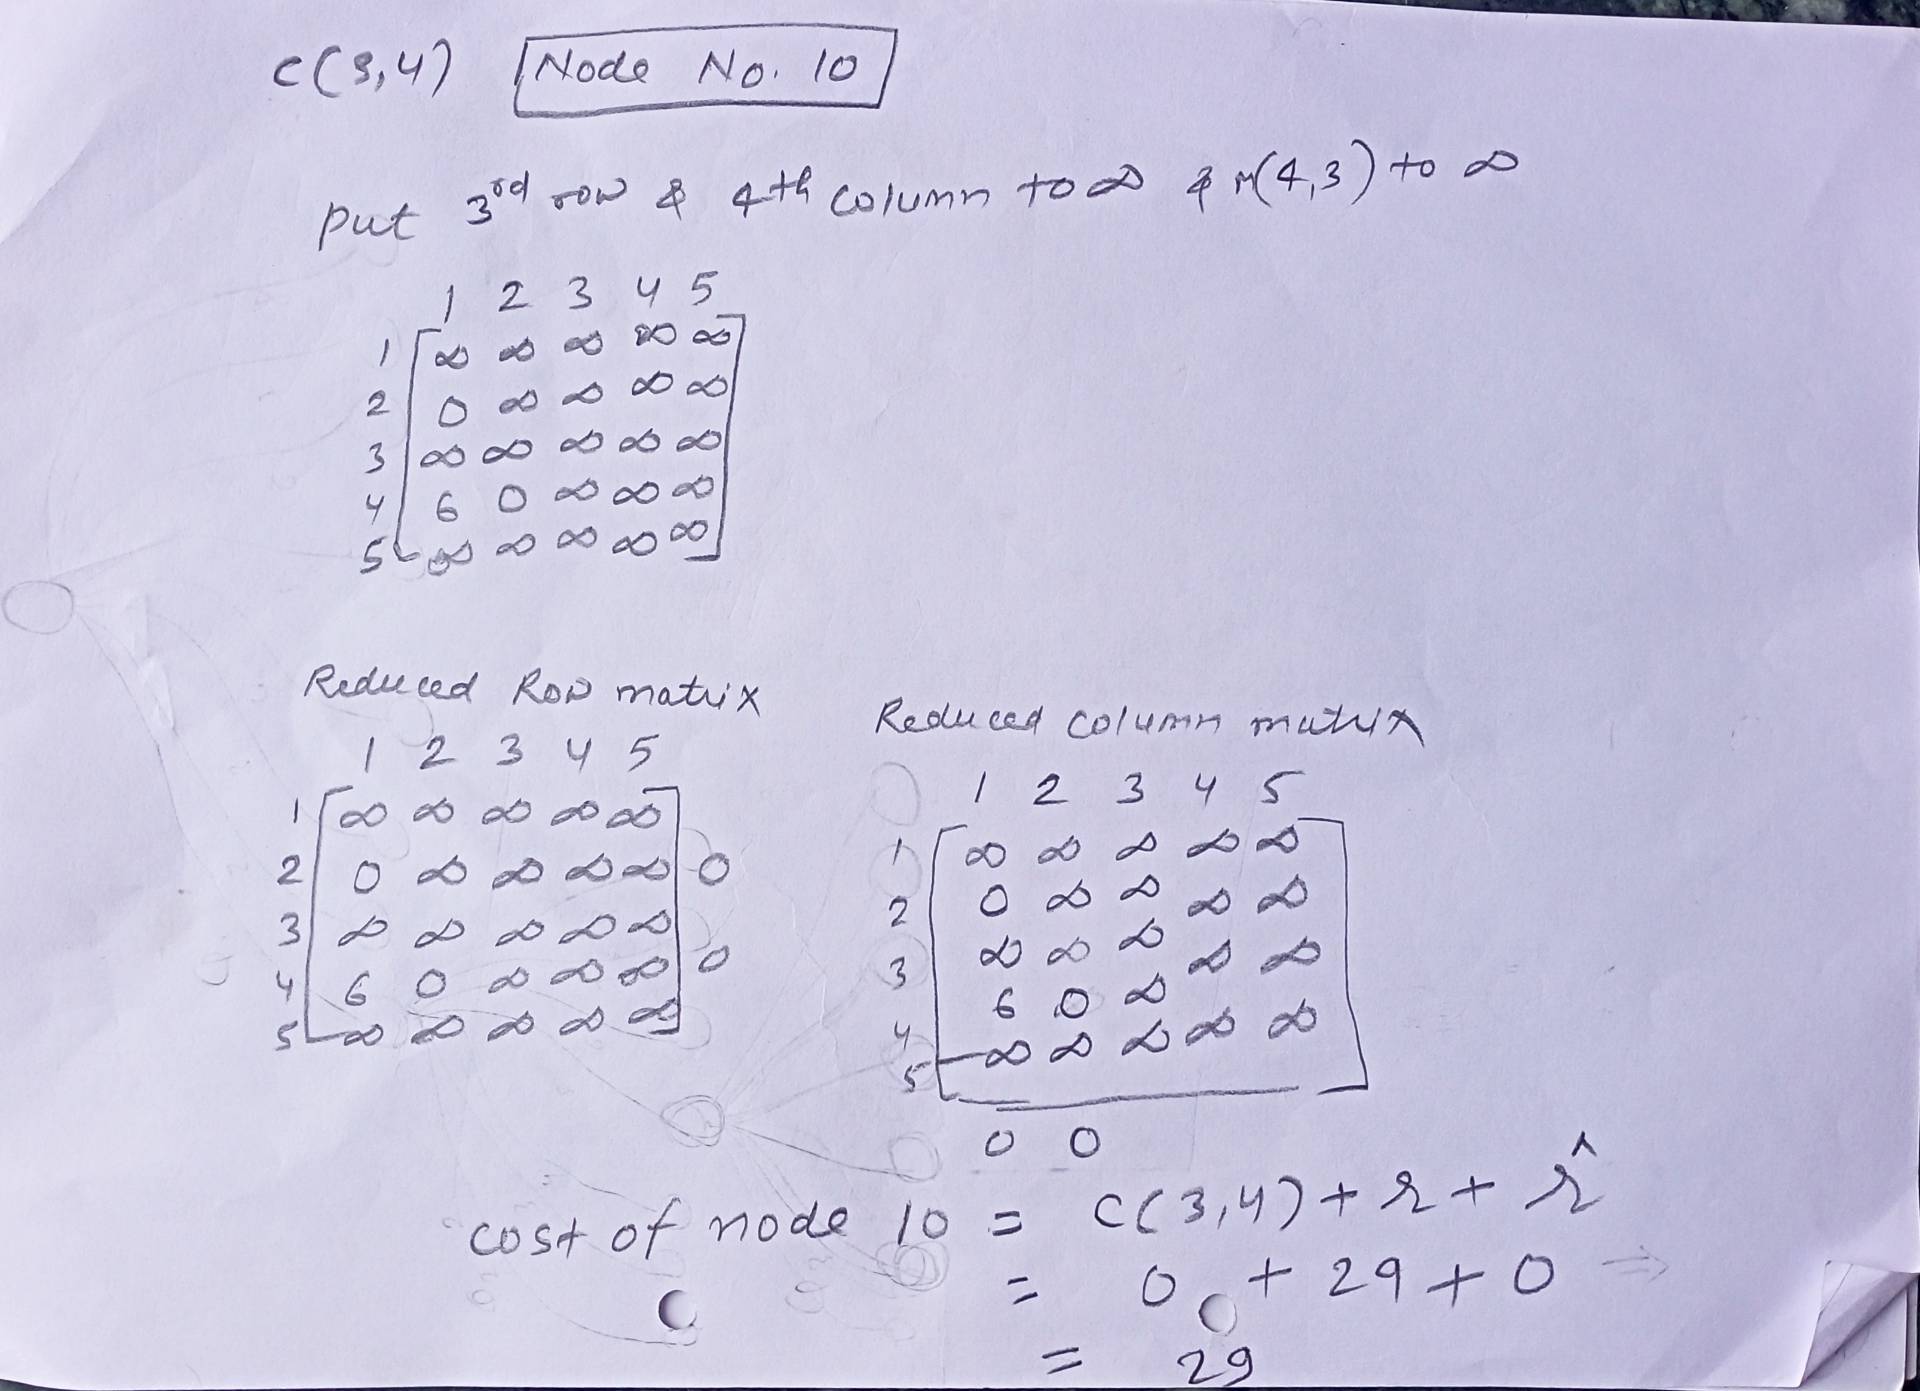 C(3,4) Node No. 10
Put 3rd row & 4th column to ∞ & M(4,3) to ∞
1 2 3 4 5
1 ∞ ∞ ∞ ∞ ∞
2 0 ∞ ∞ ∞ ∞
3 ∞ ∞ ∞ ∞ ∞
4 6 0 ∞ ∞ ∞
5 ∞ ∞ ∞ ∞ ∞
Reduced Row matrix
1 2 3 4 5
1 ∞ ∞ ∞ ∞ ∞
2 0 ∞ ∞ ∞ ∞ 0
3 ∞ ∞ ∞ ∞ ∞
4 6 0 ∞ ∞ ∞ 0
5 ∞ ∞ ∞ ∞ ∞
Reduced column matrix
1 2 3 4 5
1 ∞ ∞ ∞ ∞ ∞
2 0 ∞ ∞ ∞ ∞
3 ∞ ∞ ∞ ∞ ∞
4 6 0 ∞ ∞ ∞
5 ∞ ∞ ∞
0 0
cost of node 10 = C(3,4) + r + r̂
= 0 + 29 + 0
= 29